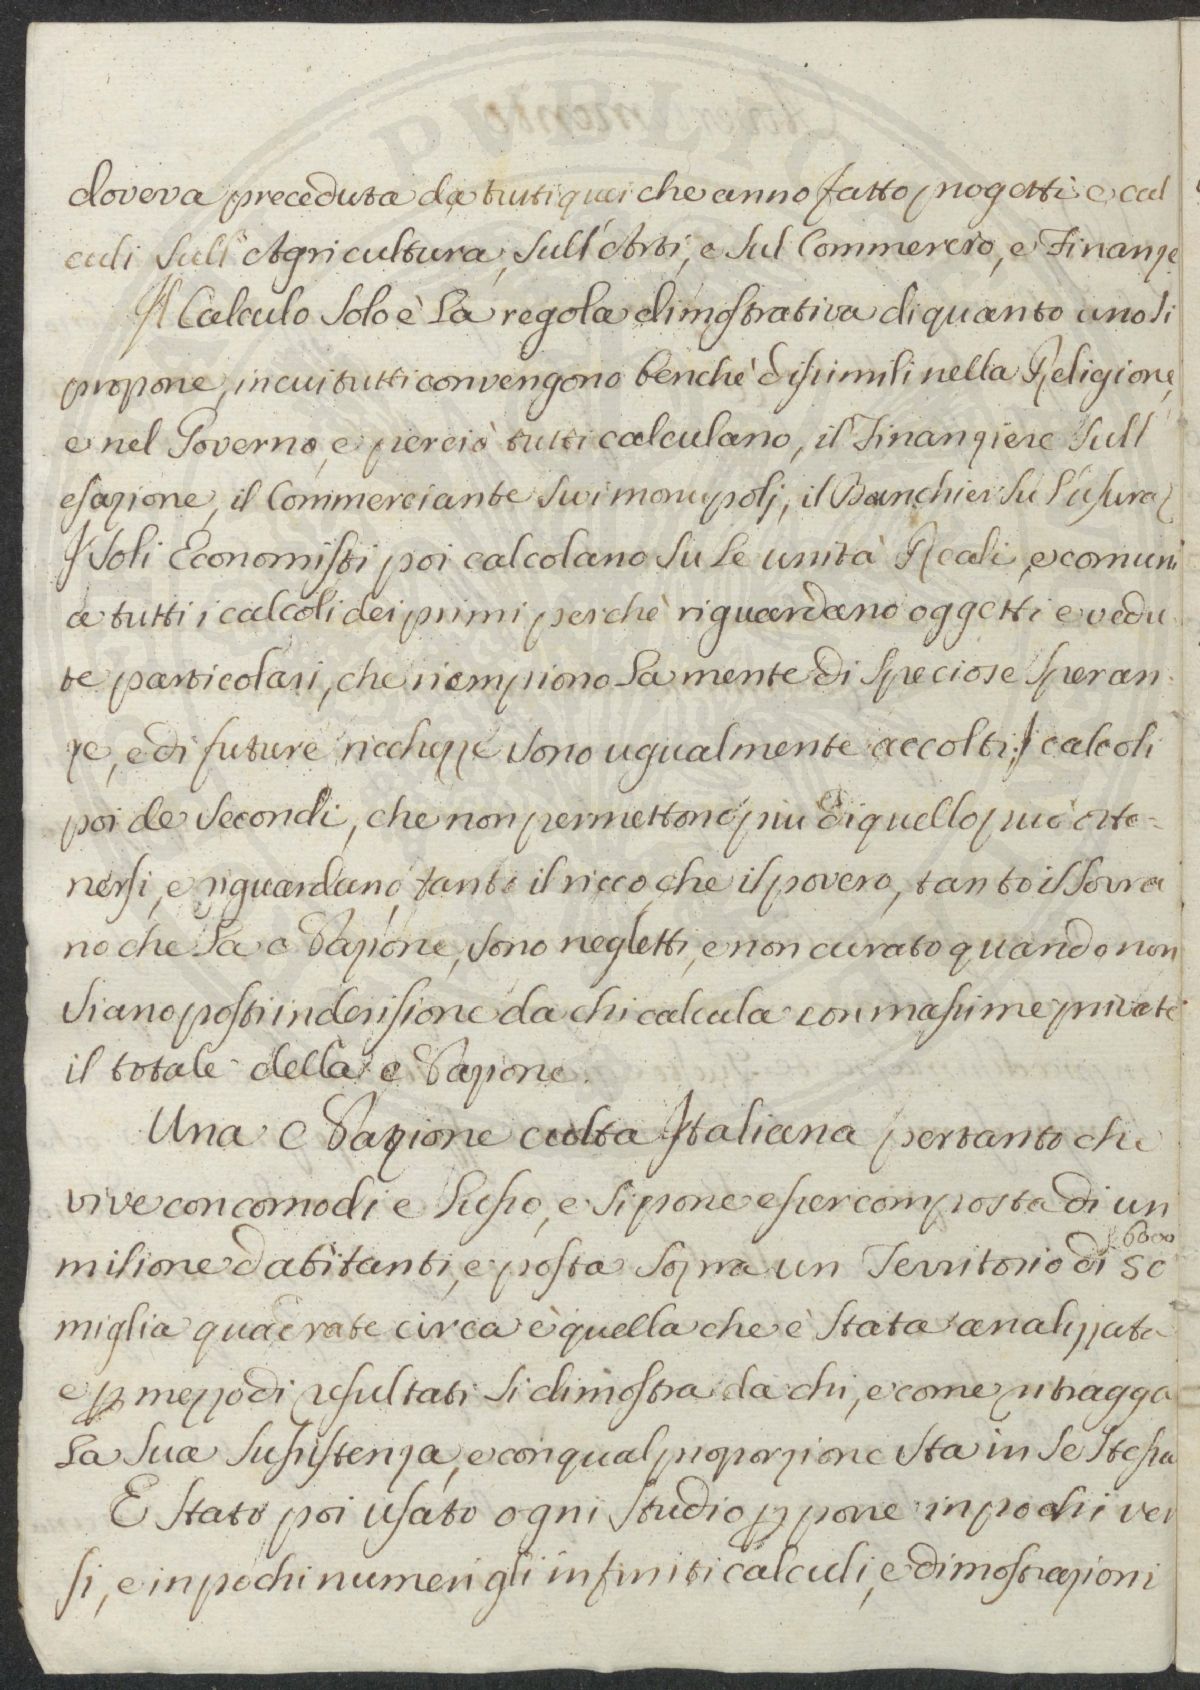 PUBLIC
doveva preceduta da tutti quei che anno fatto progetti e cal
culi sull'Agricultura, sull'Arti, e sul Commercio, e Finanze
Il Calculo solo è la regola dimostrativa di quanto uno si
propone, in cui tutti convengono benchè dissimili nella Religione,
e nel Governo, e perciò tutti calculano, il Finanziere sull
esazione, il Commerciante sui monupolj, il Banchier su l'usura,
I soli Economisti poi calcolano su le unità Reali, e comuni
a tutti i calcoli dei primi perchè riguardano oggetti e vedu
te particolari, che riempiono la mente di speciose speran-
ze, e di future ricchezze sono ugualmente accolti; I calcoli
poi de secondi, che non permettono più di quello può otte-
nersi, e riguardano, tanto il ricco, che il povero, tanto il Sovra
no che la Nazione, sono negletti, e non curato quando non
siano posti in derisione da chi calcula con massime private
il totale della Nazione.
Una Nazione culta Italiana pertanto che
vive con comodi e lusso, e si pone esser composta di un
milione d'abitanti, e posta sopra un Territorio di 6000
miglia quadrate circa è quella che è stata analizzata
e p mezzo di resultati si dimostra da chi, e come ritragga
la sua sussistenza, e con qual proporzione sta in se stessa
E stato poi usato ogni studio p porre in pochi ver
si, e in pochi numeri gli infiniti calculi, e dimostrazioni